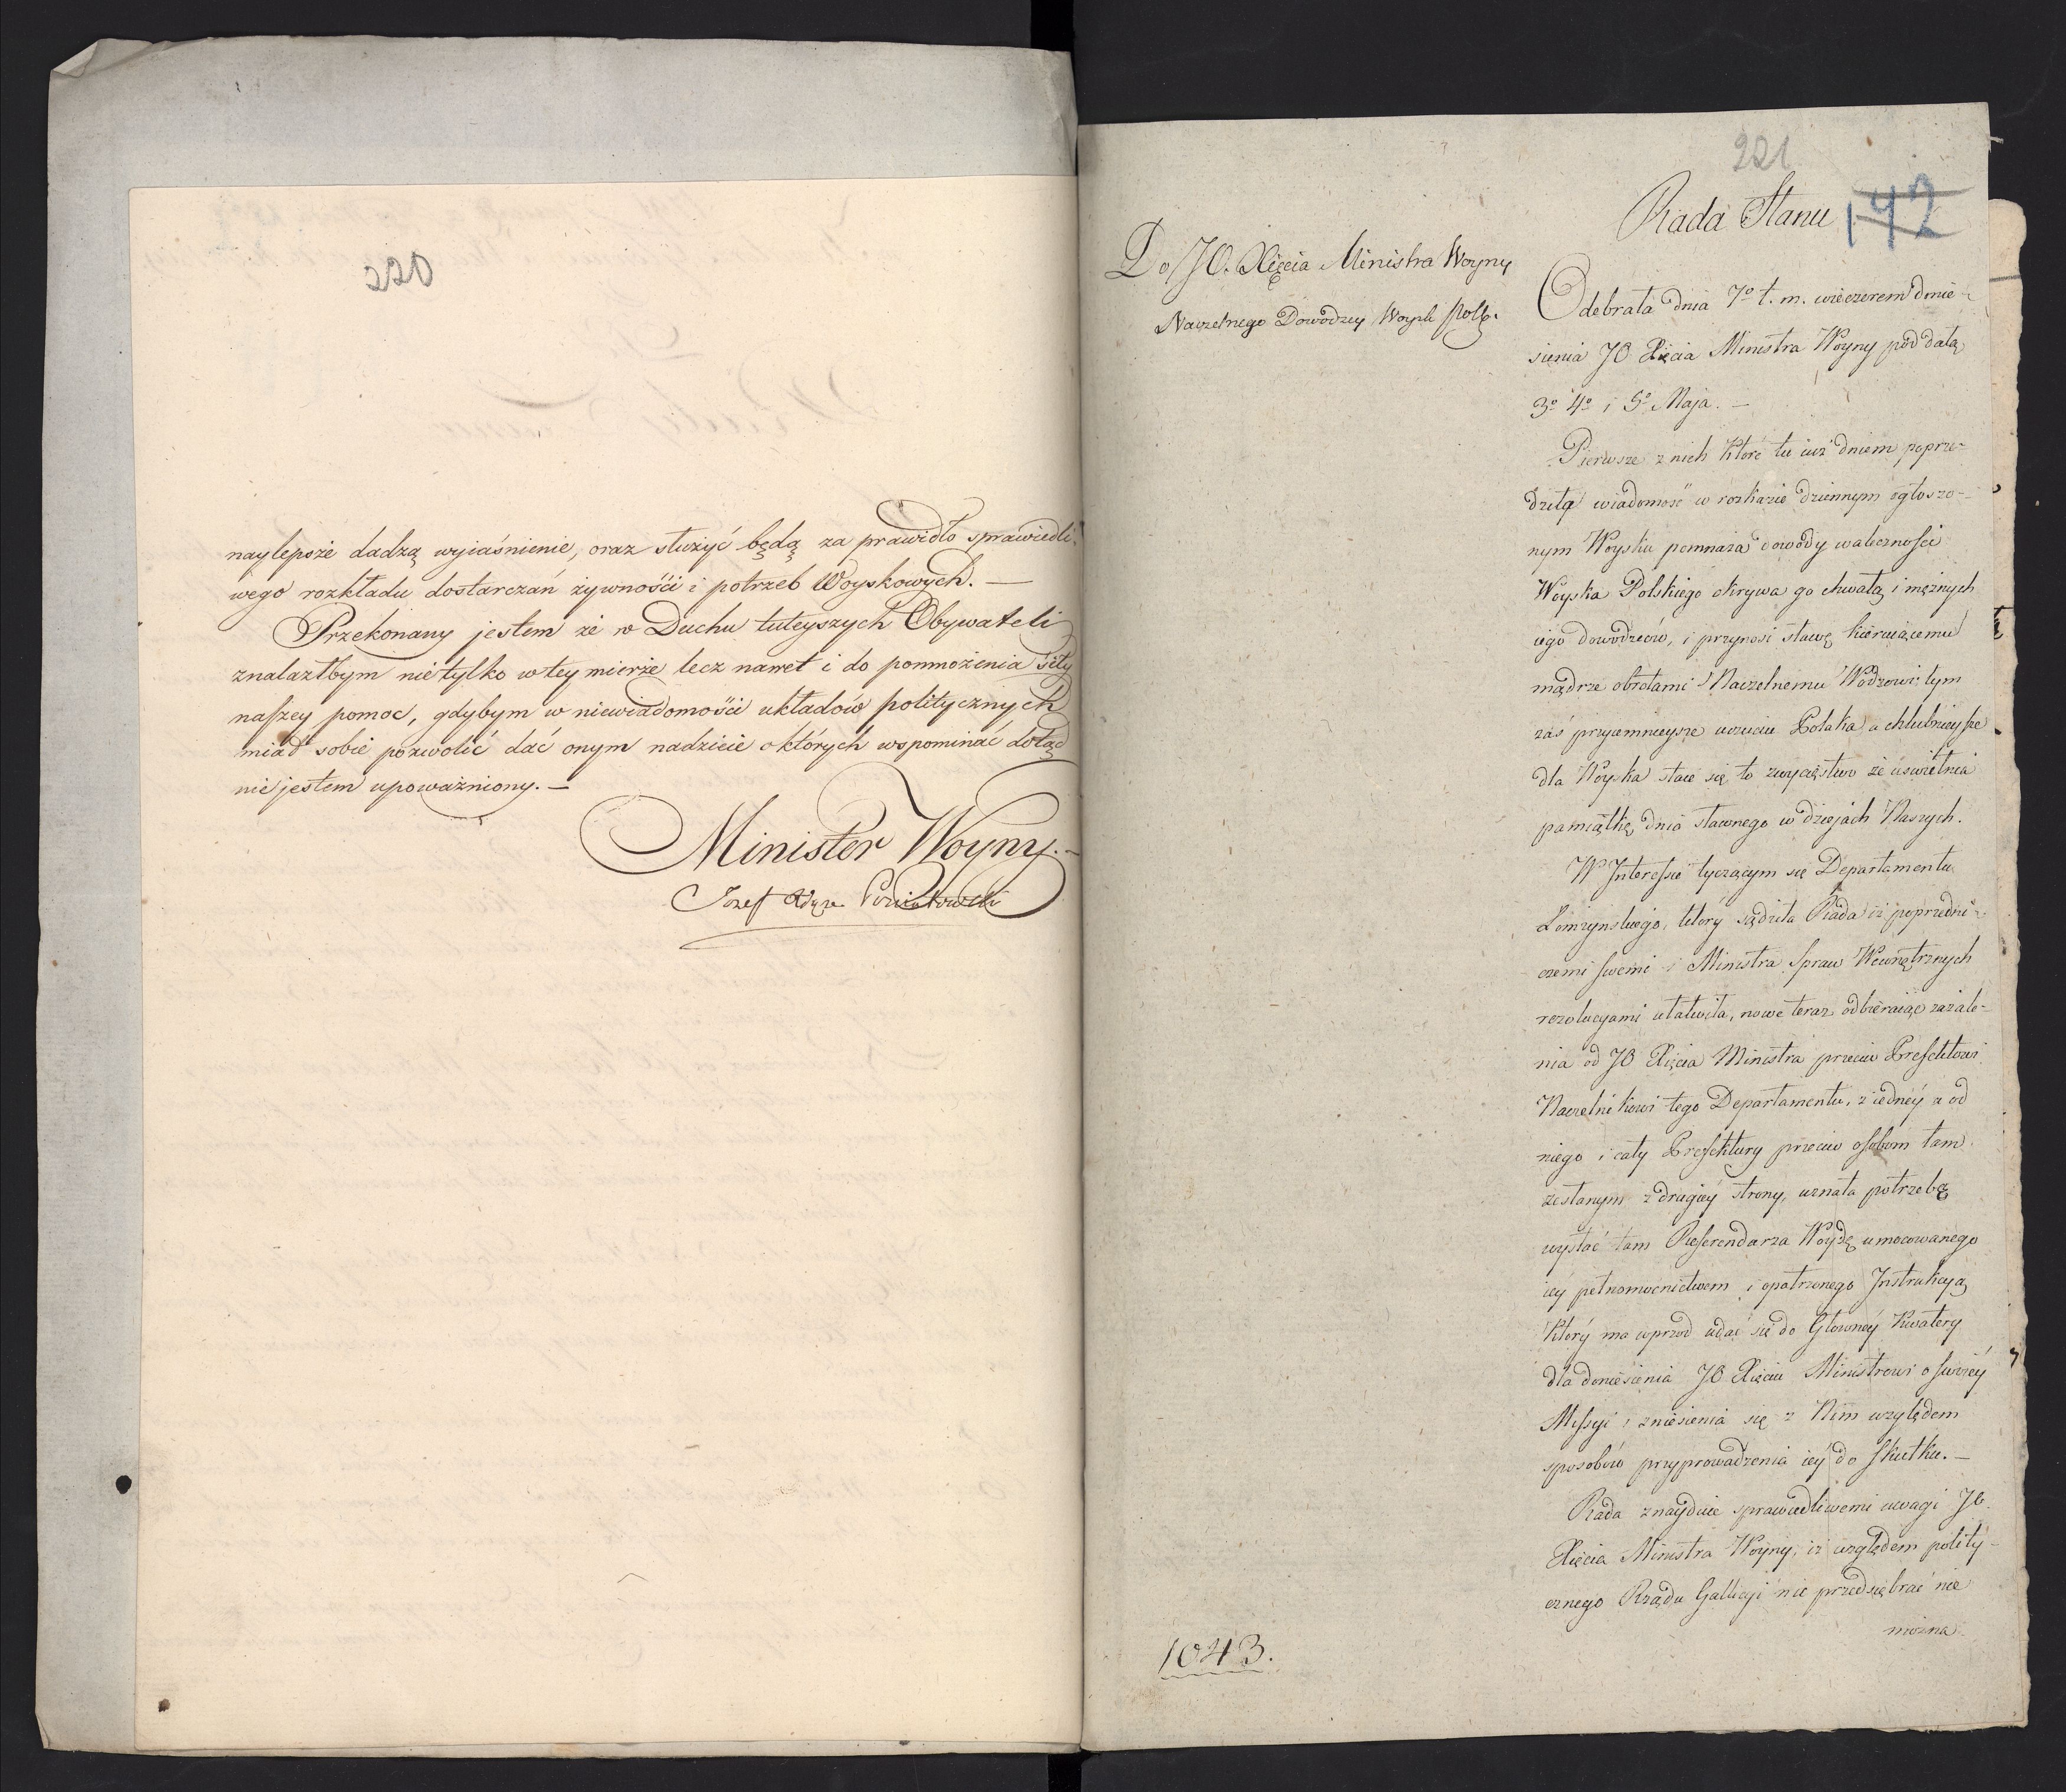 220
naylepsze dadzą wyiaśnienie, oraz służyć będą za prawidło sprawiedli-
wego rozkładu dostarczań żywnośći i potrzeb Woyskowych. —
Przekonany jestem że w Duchu tuteyszych Obywateli
znalazłbym nie tylko w tey mierze lecz nawet i do pomnożenia siły
naszey pomoc, gdybym w niewiadomośći układów politycznych
miał sobie pozwolić dać onym nadzieie o których wspominać dotąd
nie jestem upoważniony. —
Minister Woyny. —
Jozef Xiąze Poniatowski
221
142
Rada Stanu
Do JO. Xięcia Ministra Woyny
Naczelnego Dowodzcy Woysk Polb.
Odebrała dnia 7o t. m. wieczerem donie-
sienia JO Xięcia Ministra Woyny pod datą
3o 4o i 5o Maja. —
Pierwsze z nich które tu iuż dniem poprze-
dziła wiadomość w rozkazie dziennym ogłoszo-
nym Woysku pomnaża dowody walecznosci
Woyska Polskiego okrywa go chwałą i mężnych
iego dowodzców, i przynosi sławę kieruiącemu
mądrze obrotami Naczelnemu Wodzowi: tym
zaś przyiemnieysze uczuciu Polaka a chlubnieysze
dla Woyska staie się to zwycięstwo że uswietnia
pamiątkę dnia sławnego w dziejach Naszych.
W Interessie tyczącym się Departamentu
Łomzynskiego, który sądziła Rada iż poprzedni-
czemi swemi i Ministra Spraw Wewnętrznych
rezolucyami ułatwiła, nowe teraz odbieraiąc zażale-
nia od JO Xięcia Ministra przeciw Prefektowi
Naczelnikowi tego Departamentu, z iedney a od
niego i cały Prefektury przeciw osobom tam
zesłanym z drugiey strony, uznała potrzebę
wysłać tam Referendarza Woydę umocowanego
iey pełnomocnictwem i opatrzonego Instrukcyą
który ma wprzod udać się do Głowney Kwatery
dla doniesienia JO Xięciu Ministrowi o swoiey
Missyi i zniesienia się z Nim względem
sposobów przyprowadzenia iey do skutku. —
Rada znayduie sprawiedliwemi uwagi JO.
Xięcia Ministra Woyny, iż względem polity-
cznego Rządu Gallicyi nic przedsiębrać nie
można
1043.